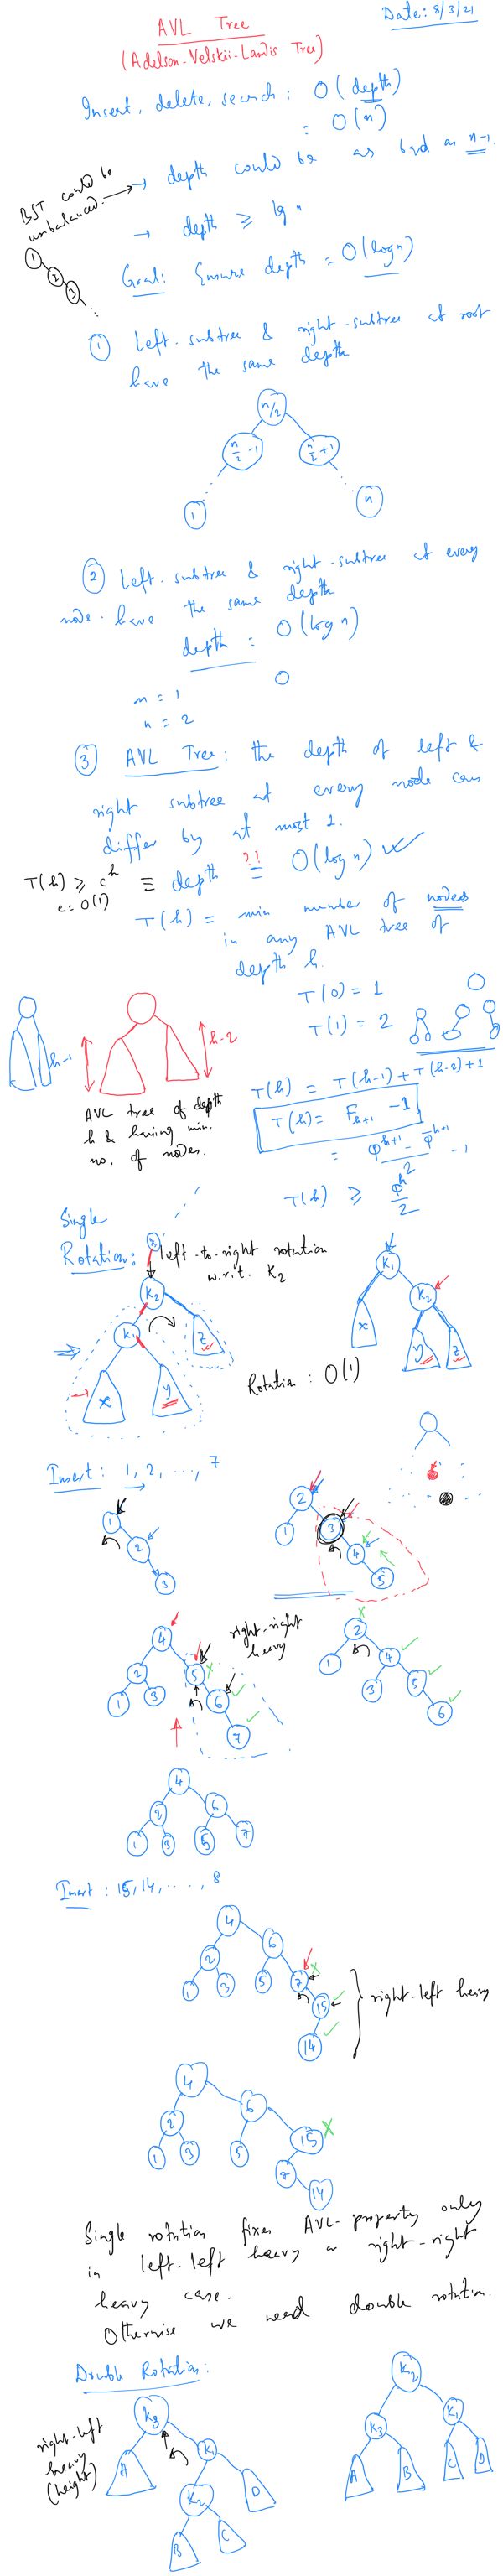 AVL Tree
Date: 8/3/21
(Adelson-Velskii-Landis Tree)
Insert, delete, search: O(depth)
= O(n)
BST could be
unbalanced.
→ depth could be as bad as n-1.
→ depth ≥ lg n
1
2
3
Goal: Ensure depth = O(log n)
① Left-subtree & right-subtree at root
have the same depth
n/2
n/2 -1
n/2 +1
1
n
② Left-subtree & right-subtree at every
node have the same depth
depth = O(log n)
n = 1
n = 2
③ AVL Tree: the depth of left &
right subtree at every node can
differ by at most 1.
??
T(h) ≥ c^h ≡ depth = O(log n)
c = O(1)
T(h) = min number of nodes
in any AVL tree of
depth h.
T(0) = 1
T(1) = 2
h-1
h-2
T(h) = T(h-1) + T(h-2) + 1
AVL tree of depth
h & having min.
no. of nodes.
T(h) = F_{h+1} - 1
T(h) ≥ φ^h / 2
Single
Rotation:
left-to-right rotation
w.r.t. K2
K2
K1
X
Y
Z
K1
K2
X
Y
Z
Rotation : O(1)
Insert: 1, 2, ..., 7
1
2
3
2
1
3
4
5
right-right
heavy
4
2
5
1
3
6
7
2
1
4
3
5
6
4
2
6
1
3
5
7
Insert: 15, 14, ...., 8
4
2
6
1
3
5
7
15
14
right-left heavy
4
2
6
1
3
5
15
7
14
Single rotation fixes AVL-property only
in left-left heavy or right-right
heavy case.
Otherwise we need double rotation.
Double Rotation:
right-left
heavy
(height)
K3
A
K1
K2
D
B
C
K2
K3
K1
A
B
C
D